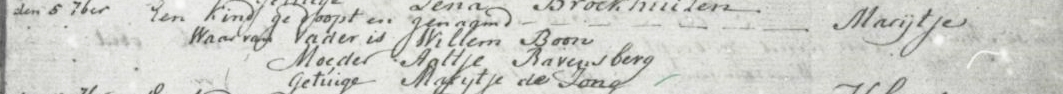 Lena Broekhuisen
den 5 7ber Een Kind gedoopt en genaamd Marijtje
Waar van Vader is Willem Boon
Moeder Aaltje Ravensberg
Getuige Marijtje de Jong